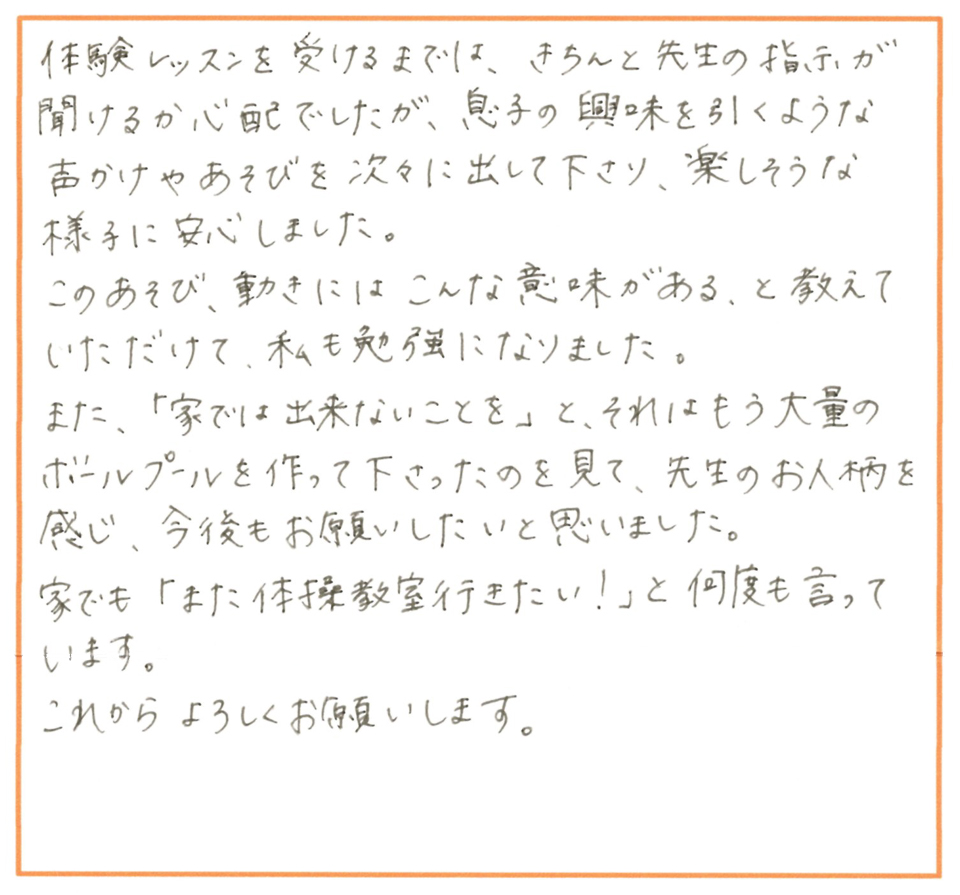 体験レッスンを受けるまでは、きちんと先生の指示が
聞けるか心配でしたが、息子の興味を引くような
声かけやあそびを次々に出して下さり、楽しそうな
様子に安心しました。
このあそび、動きにはこんな意味がある、と教えて
いただけて、私も勉強になりました。
また、「家では出来ないことを」と、それはもう大量の
ボールプールを作って下さったのを見て、先生のお人柄を
感じ、今後もお願いしたいと思いました。
家でも「また体操教室行きたい！」と何度も言って
います。
これからよろしくお願いします。